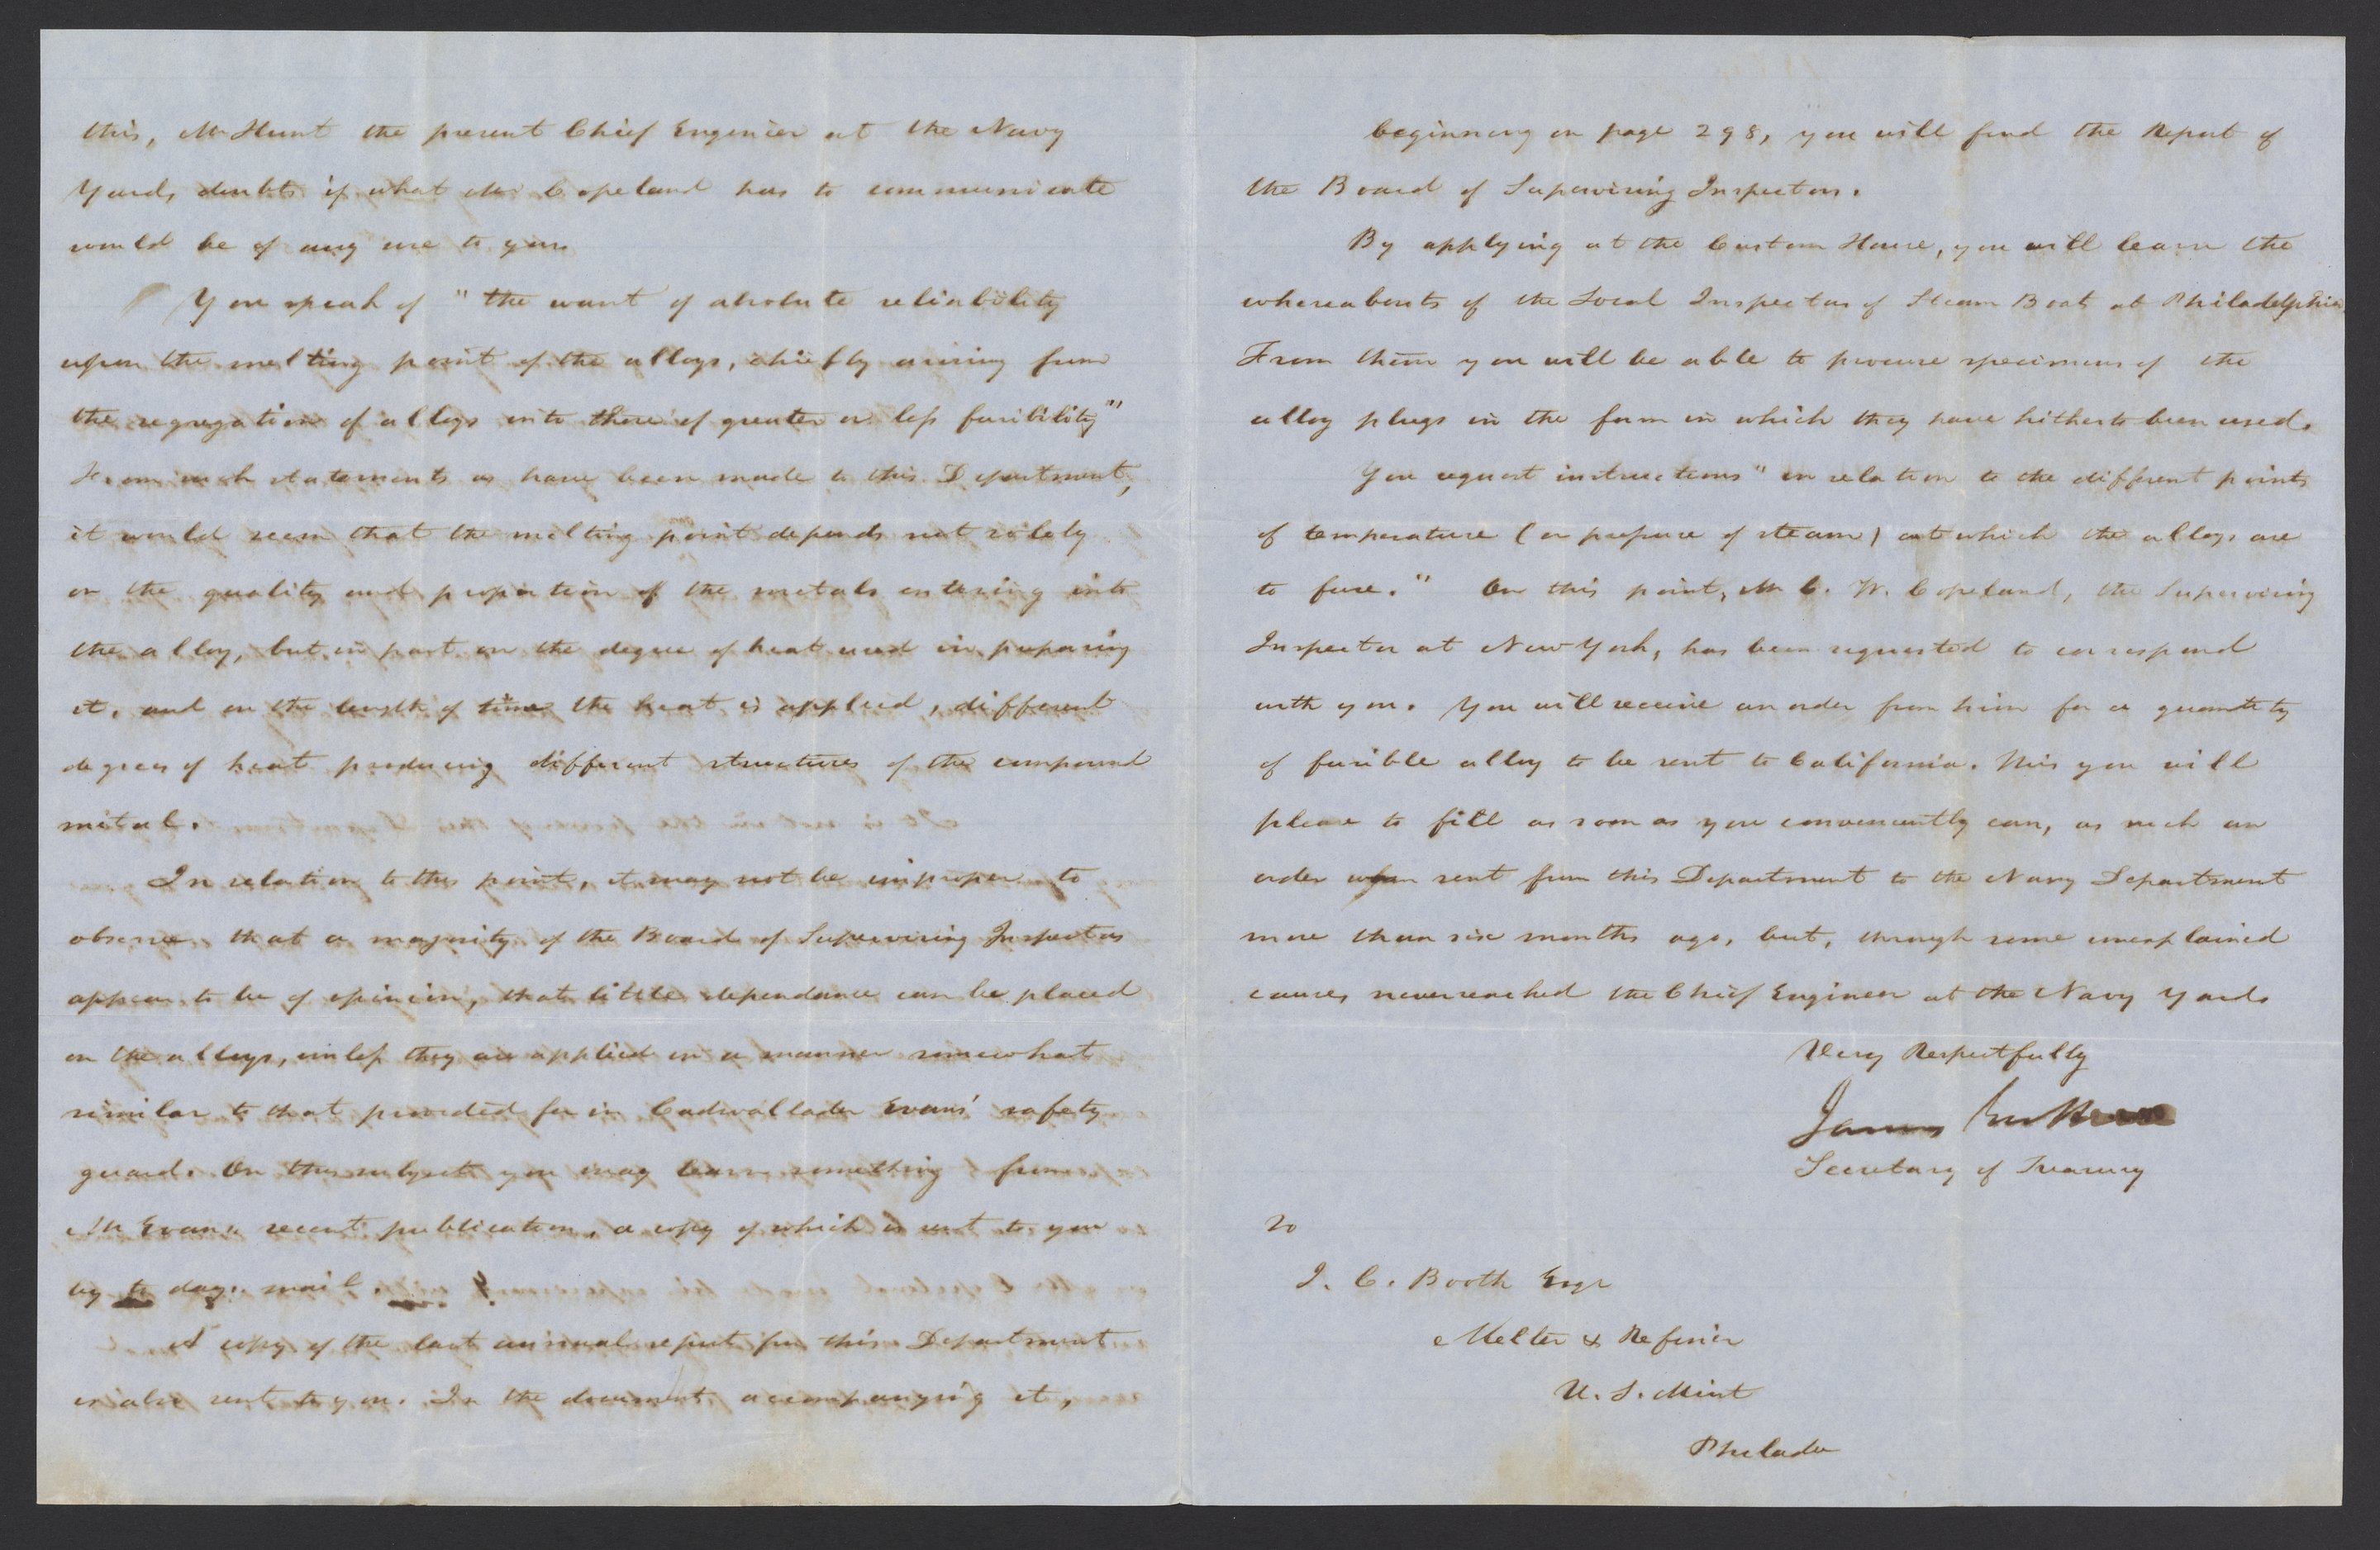 this, Mr Hunt the present Chief Engineer at the Navy
Yard, doubts if what Mr Copeland has to communicate
would be of any use to you.
You speak of "the want of absolute reliability
upon the melting point of the alloys, chiefly arising from
the segregation of alloys into those of greater or less fusibility"
From such statements as have been made to this Department,
it would seem that the melting point depends not solely
on the quality and proportion of the metals entering into
the alloy, but in part on the degree of heat used in preparing
it, and on the length of time the heat is applied, different
degrees of heat producing different structures of the compound
metal.
In relation to this point, it may not be improper to
observe that a majority of the Board of Supervising Inspectors
appear to be of opinion, that little dependance can be placed
on the alloys, unless they are applied in a manner somewhat
similar to that provided for in Cadwallader Evans' safety
guard. On this subject you may learn something from
Mr Evans recent publication, a copy of which is sent to you
by to days mail.
A copy of the last annual report from this Department
is also sent to you. In the documents accompanying it,
beginning on page 298, you will find the Report of
the Board of Supervising Inspectors.
By applying at the Custom House, you will learn the
whereabouts of the Local Inspectors of Steam Boats at Philadelphia
From them you will be able to procure specimens of the
alloy plugs in the form in which they have hitherto been used.
You request instructions "in relation to the different points
of temperature (or pressure of steam) at which the alloys are
to fuse." On this point, Mr C. W. Copeland, the Supervising
Inspector at New York, has been requested to correspond
with you. You will receive an order from him for a quantity
of fusible alloy to be sent to California. This you will
please to fill as soon as you conveniently can, as such an
order was sent from this Department to the Navy Department
more than six months ago, but, through some unexplained
causes never reached the Chief Engineer at the Navy Yard.
Very Respectfully
James Guthrie
Secretary of Treasury
To
J. C. Booth Esqr
Melter & Refiner
U. S. Mint
Philada